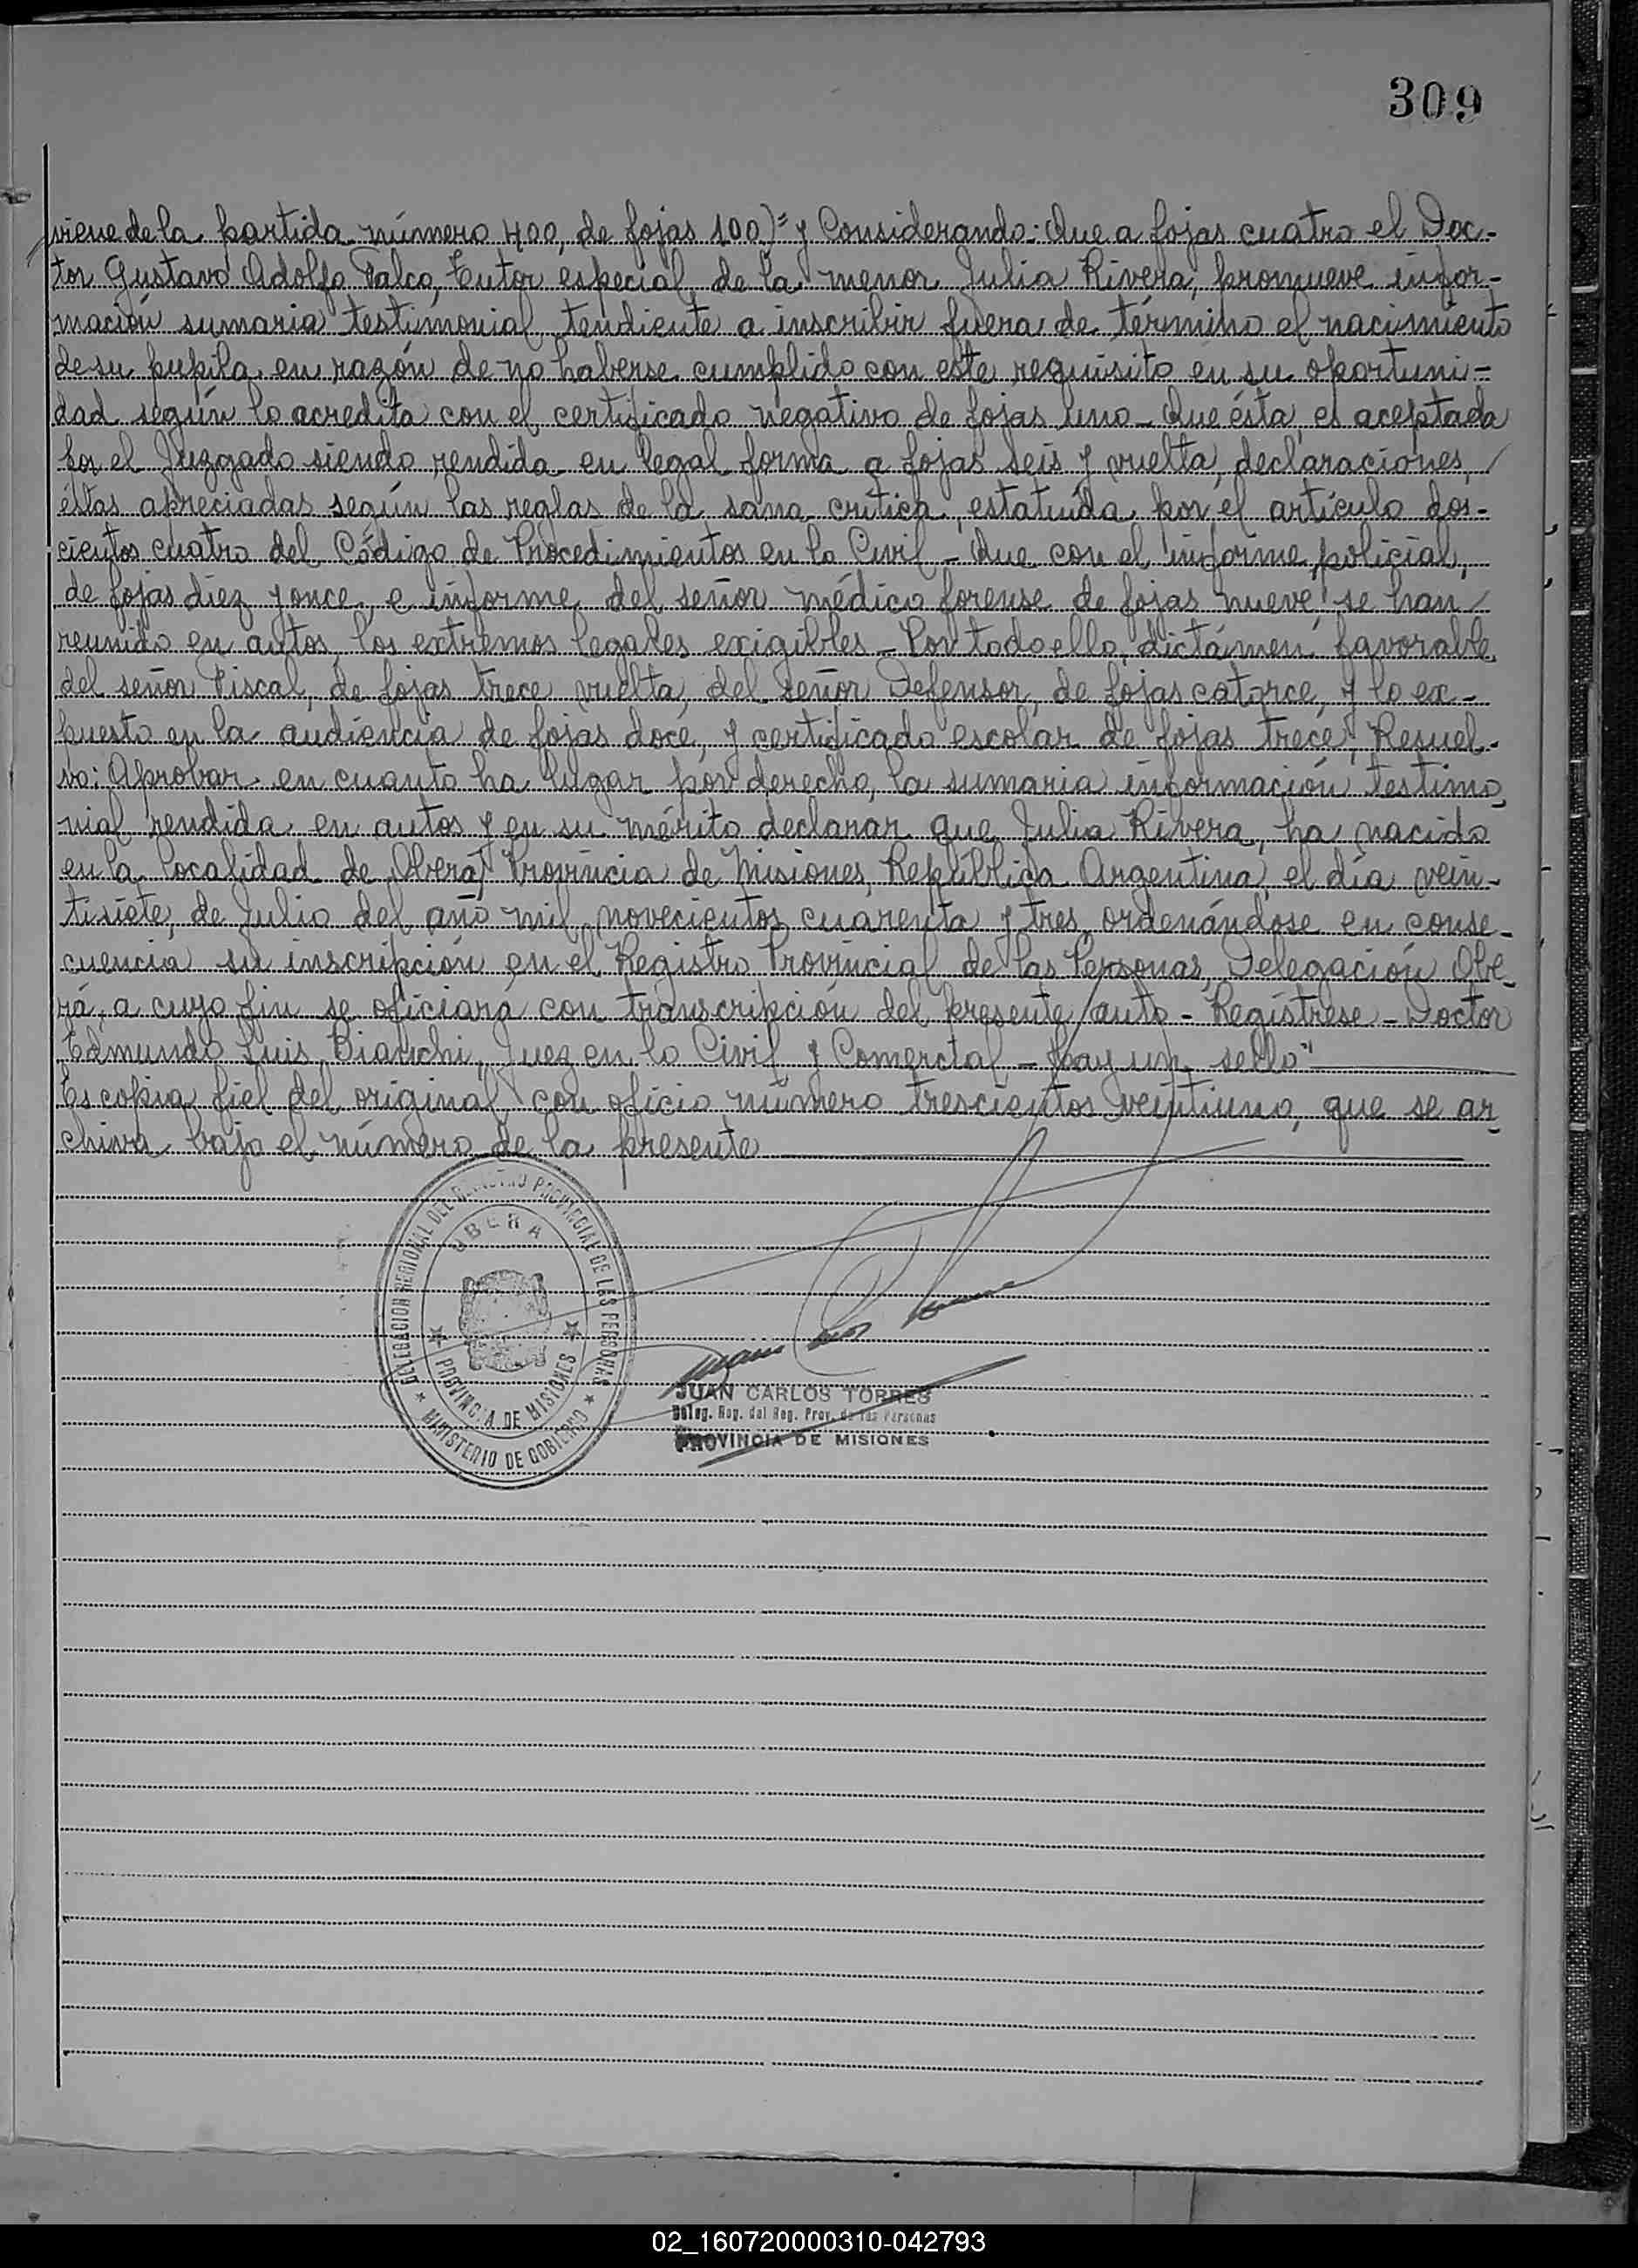 309
viene de la partida número 400, de fojas 100)= y Considerando: Que a fojas cuatro el Doc-
tor Gustavo Adolfo Falco, Tutor especial de la menor Julia Rivera, promueve infor-
mación sumaria testimonial tendiente a inscribir fuera de término el nacimiento
de su pupila en razón de no haberse cumplido con este requisito en su oportuni-
dad según lo acredita con el certificado negativo de fojas uno - Que ésta es aceptada
por el Juzgado siendo rendida en legal forma a fojas seis y vuelta, declaraciones
éstas apreciadas según las reglas de la sana crítica, estatuída por el artículo dos-
cientos cuatro del Código de Procedimientos en lo Civil - Que con el informe policial,
de fojas diez y once, e informe del señor médico forense de fojas nueve se han
reunido en autos los extremos legales exigibles - Por todo ello, dictámen favorable
del señor Fiscal, de fojas trece vuelta, del señor Defensor, de fojas catorce, y lo ex-
puesto en la audiencia de fojas doce, y certificado escolar de fojas trece, Resuel-
vo: Aprobar en cuanto ha lugar por derecho, la sumaria información testimo-
nial rendida en autos y en su mérito declarar que Julia Rivera, ha nacido
en la localidad de Oberá, Provincia de Misiones, República Argentina, el día vein-
tisiete, de Julio del año mil novecientos cuarenta y tres, ordenándose en conse-
cuencia su inscripción en el Registro Provincial de las Personas, Delegación Obe-
rá, a cuyo fin se oficiará con transcripción del presente auto - Regístrese - Doctor
Edmundo Luis Bianchi, Juez en lo Civil y Comercial - Hay un sello"
Es copia fiel del original, con oficio número trescientos veintiuno, que se ar-
chiva bajo el número de la presente
DELEGACION REGIONAL DEL REGISTRO PROVINCIAL DE LAS PERSONAS
OBERA
PROVINCIA DE MISIONES
MINISTERIO DE GOBIERNO
JUAN CARLOS TORRES
Deleg. Reg. del Reg. Prov. de las Personas
PROVINCIA DE MISIONES
02_160720000310-042793